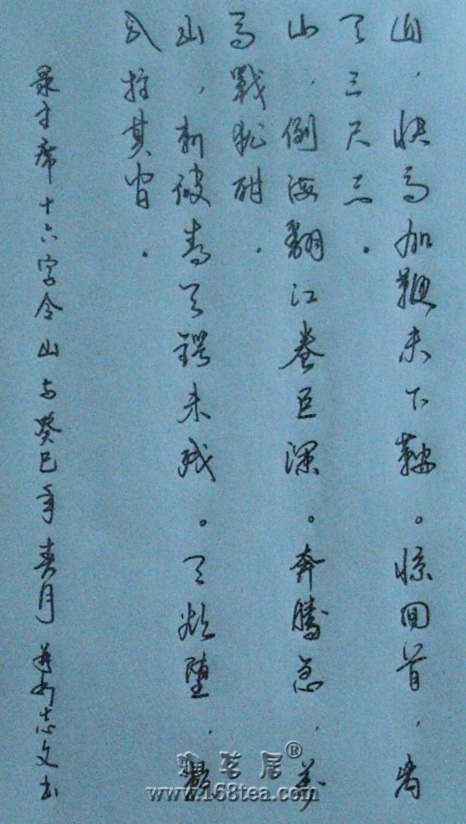 山，快马加鞭未下鞍。惊回首，离
天三尺三。
山，倒海翻江卷巨澜。奔腾急，万
马戰犹酣。
山，刺破青天锷未残。天欲堕，赖
以拄其间。
录主席十六字令山于癸巳年春月志文书
茗居®
www.168tea.com